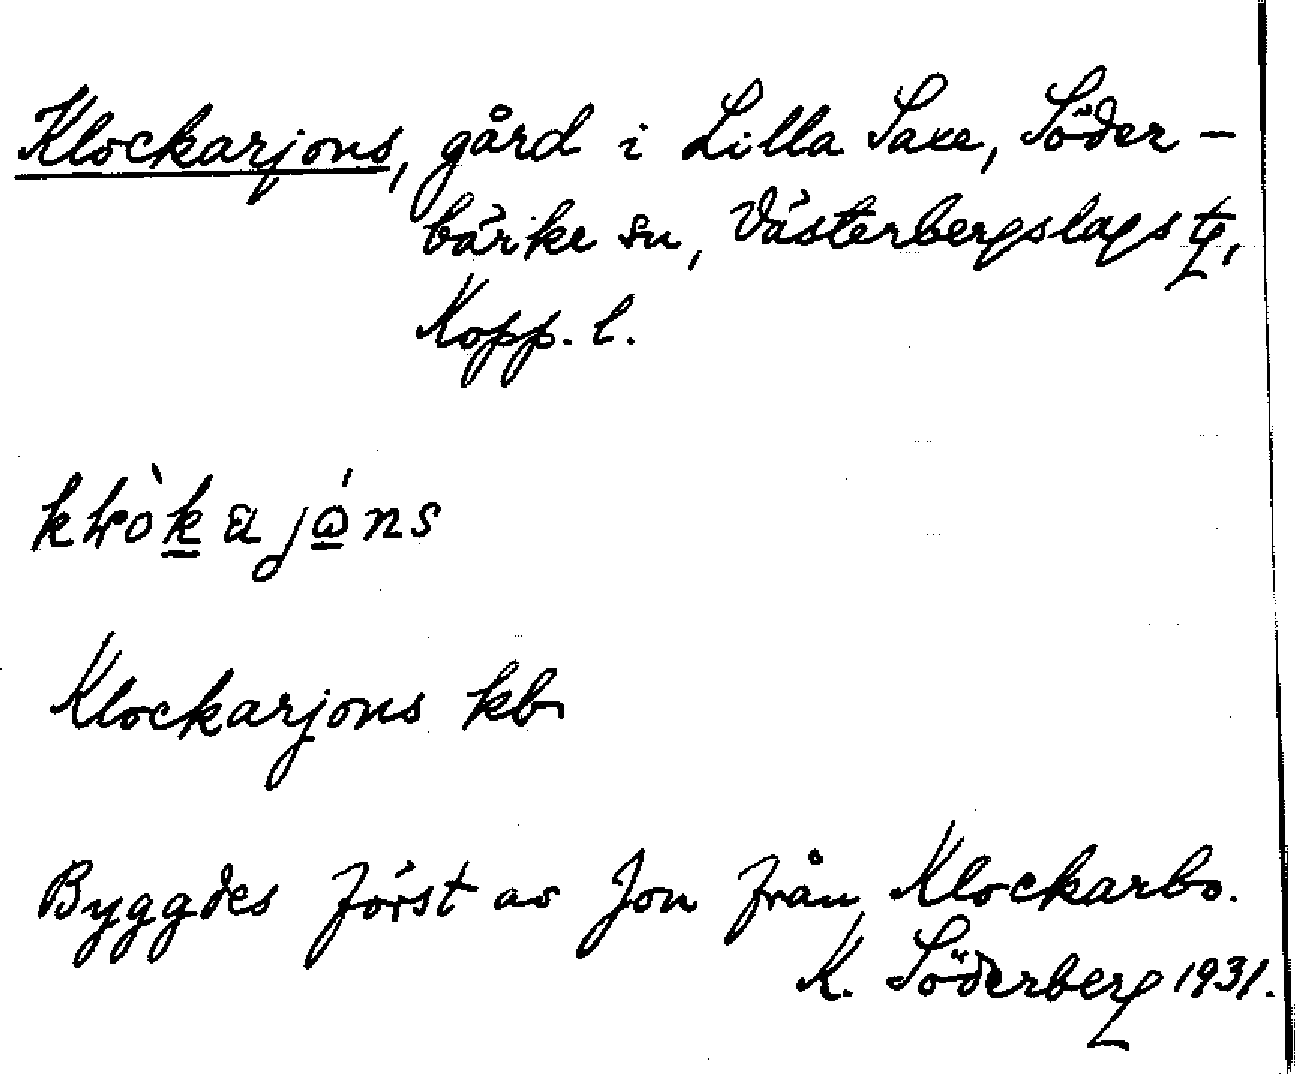 Klockarjons, gård i Lilla Saxe, Söder-
bärke sn, Västerbergslags tg,
Kopp. l.
Klockarjons kb
Byggdes först av Jon från Klockarbo.
K. Söderberg 1931.